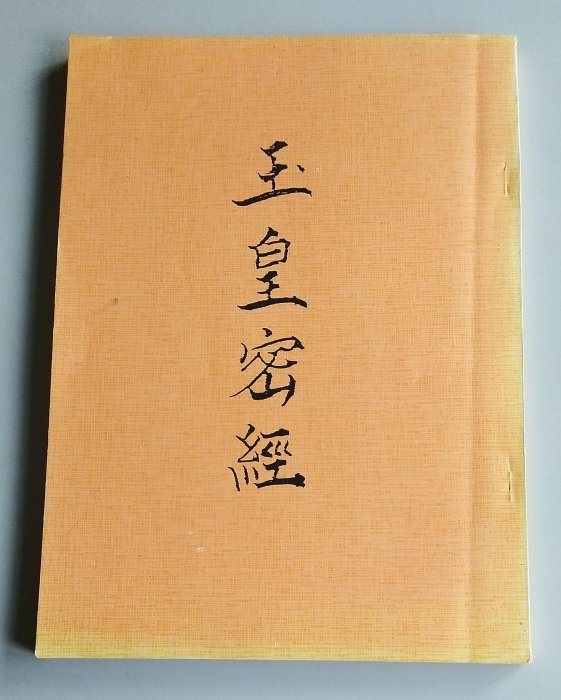 玉皇密經